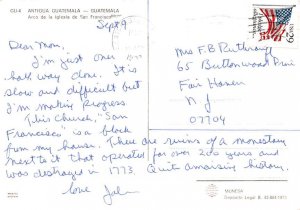 GU-4 ANTIGUA GUATEMALA — GUATEMALA
Arco de la Iglesia de San Francisco
Sept 9
Dear Mom,
I'm just one
half way done. It is
slow and difficult but
I'm making progress
This Church, "San
Francisco" is a block
from my house. There are ruins of a monestary
next to it that operated for over 200 years and
was destroyed in 1773. Quite amaising history.
love John
Mrs F.B Ruthrauff
65 Buttonwood Drive
Fair Haven
N J
07704
MUNESA
Depósito Legal B.